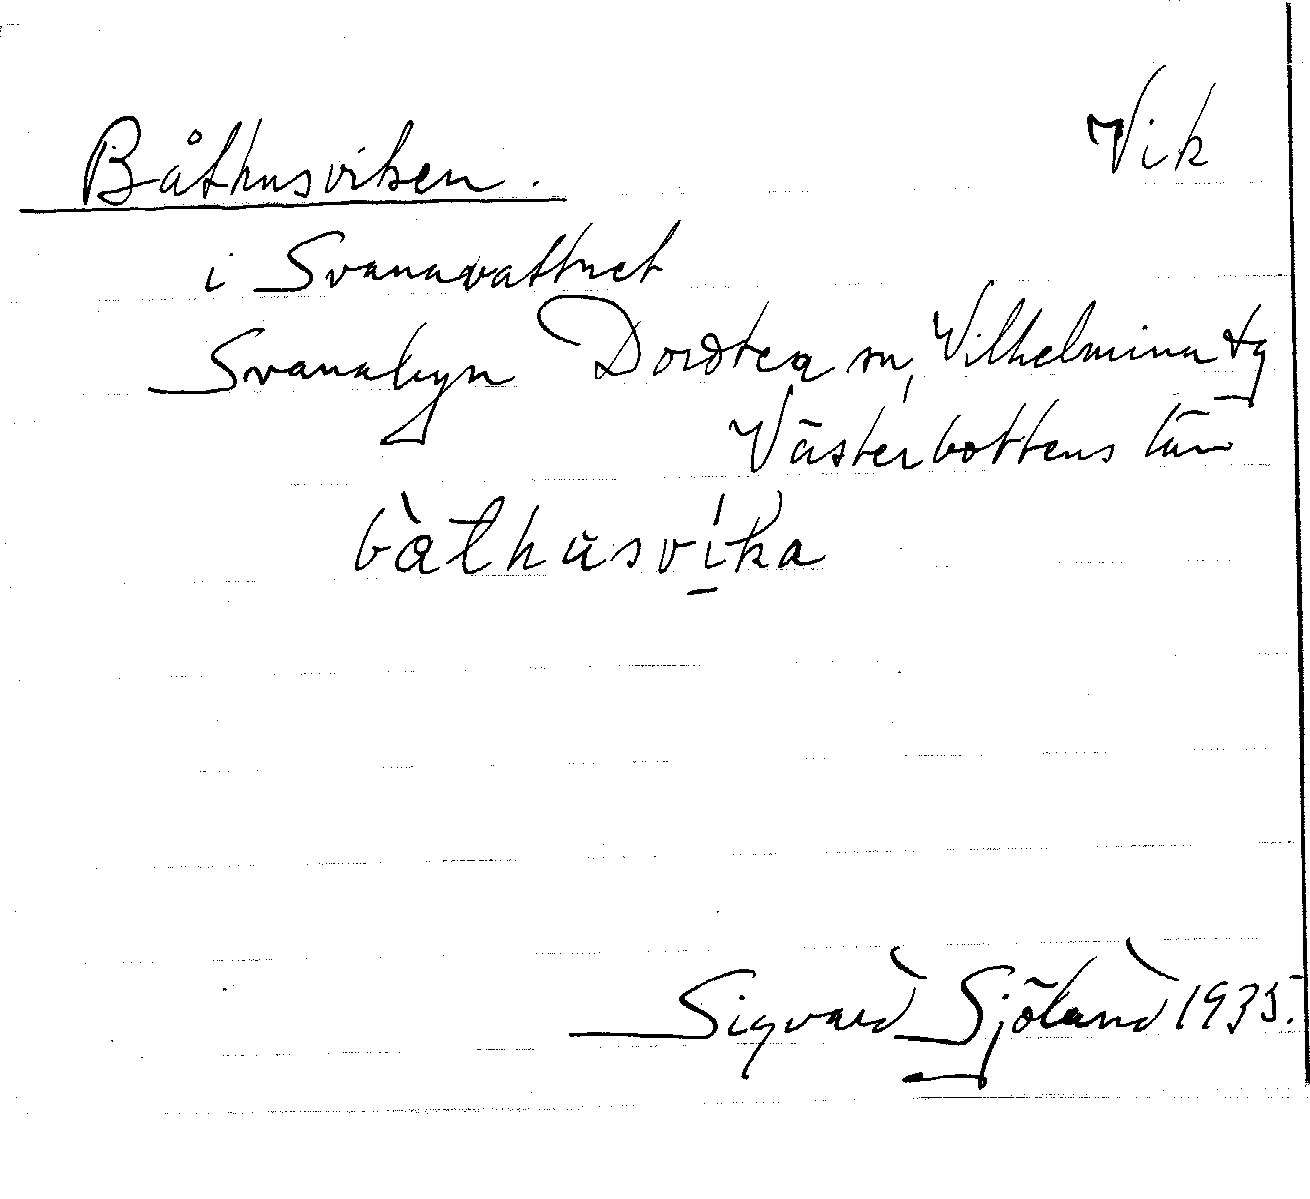 Båthusviken.
Vik
i Svanavattnet
Svanabyn Dorotea sn, Vilhelmina tg
Västerbottens län
bàthusvíka
Sigvard Sjöland 1935.